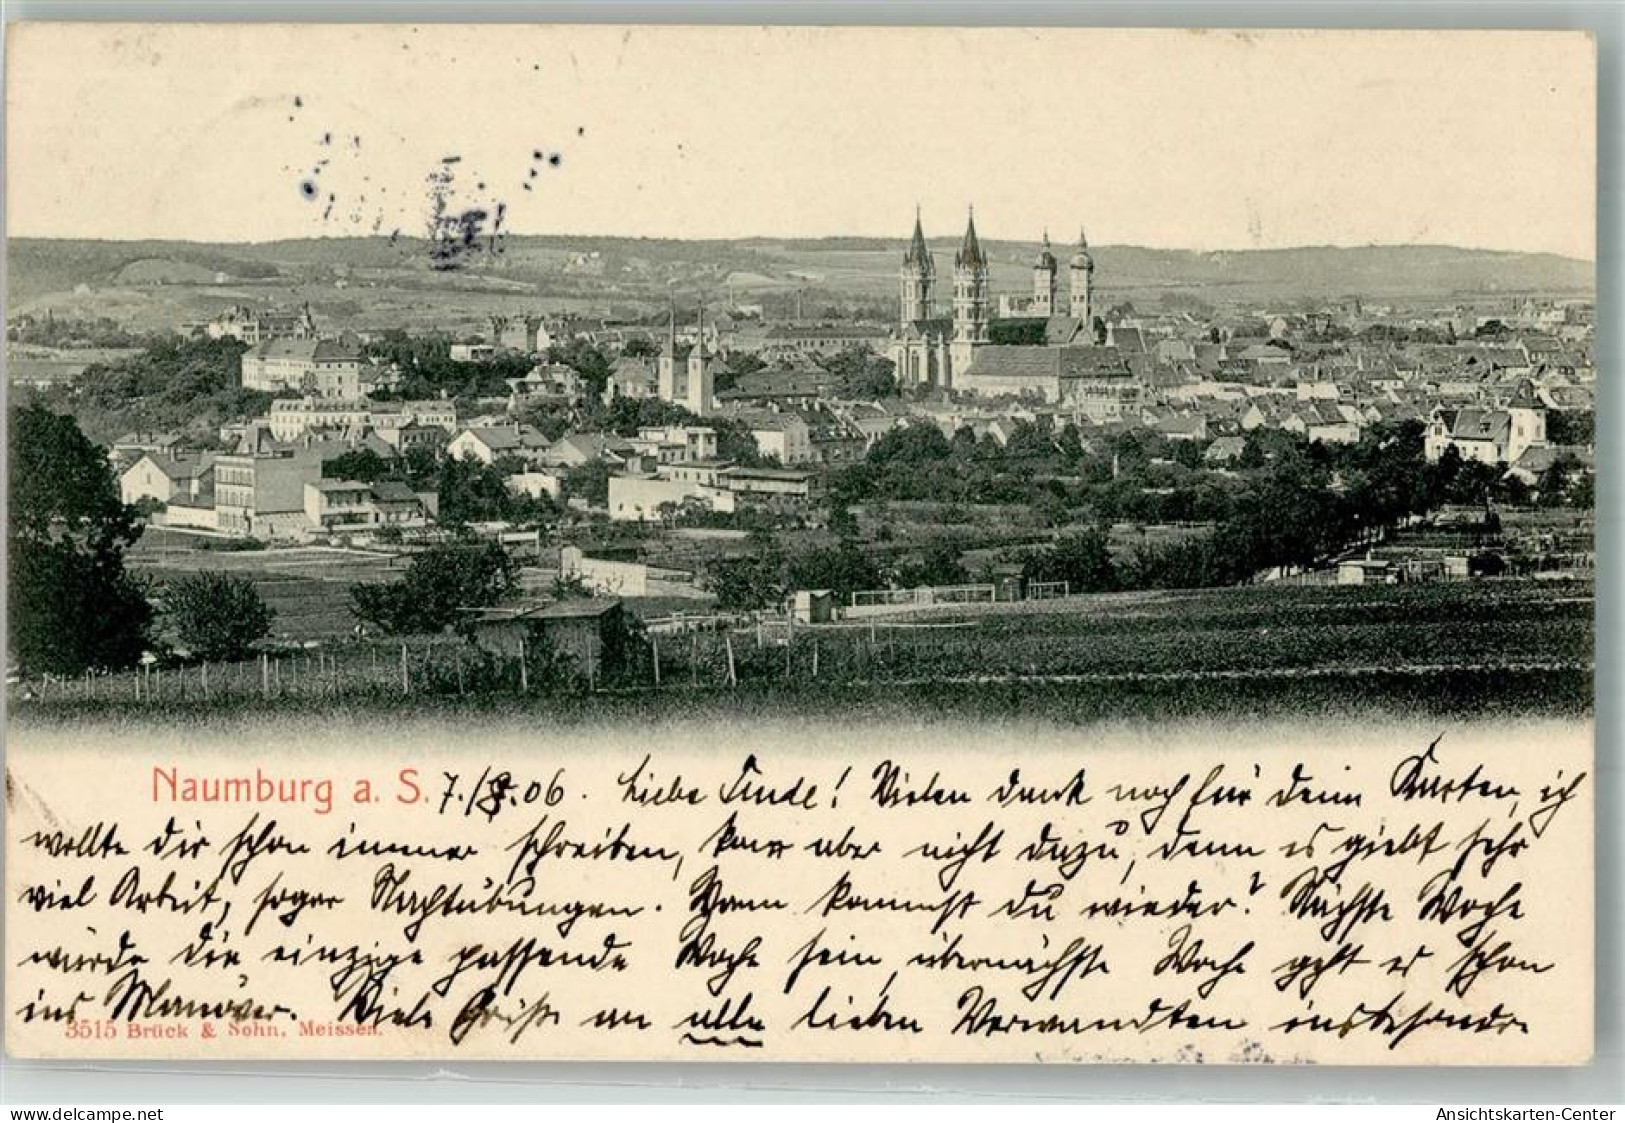 Naumburg a. S. 7./8.06. Liebe Trude! Vielen dank noch für deine Karten, ich
wollte dir schon immer schreiben, kam aber nicht dazu, denn es giebt sehr
viel Arbeit, sogar Nachtübungen. Wann kommst du wieder? Nächste Woche
würde die einzige passende Woche sein, übernächste Woche geht es schon
ins Manöver. Viele Grüße an alle lieben Verwandten insbesondre
3515 Brück & Sohn, Meissen.
www.delcampe.net
Ansichtskarten-Center